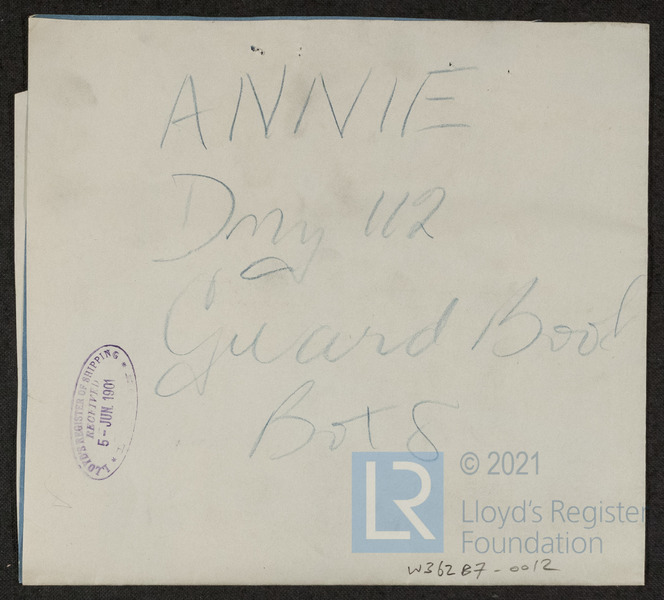 ANNIE
Dmy 112
Guard Book
Box 8
LLOYD'S REGISTER OF SHIPPING
RECEIVED
5-JUN.1901
LR
© 2021
Lloyd's Register
Foundation
W36287-0012